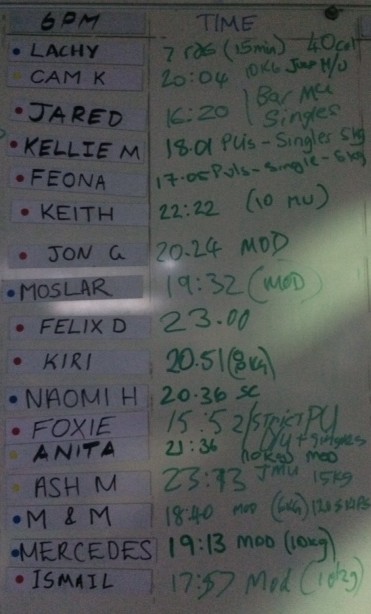 6PM TIME
LACHY 7 rds (15min) 40cal
CAM K 20:04 10KG Jump M/U
JARED 16:20 Bar MU Singles
KELLIE M 18.01 Pulls - Singles 5kg
FEONA 17.05 Pulls - Single - 5kg
KEITH 22:22 (10 MU)
JON G 20.24 MOD
MOSLAR 19:32 (MOD)
FELIX D 23.00
KIRI 20.51 (8KG)
NAOMI H 20:36 SC
FOXIE 15:52 / STRICT PU
ANITA 21:36 (10kg) mod
ASH M JMU 15KG
M & M 18:40 MOD (6KG)
MERCEDES 19:13 MOD (10kg)
ISMAIL 17:57 Mod (10kg)